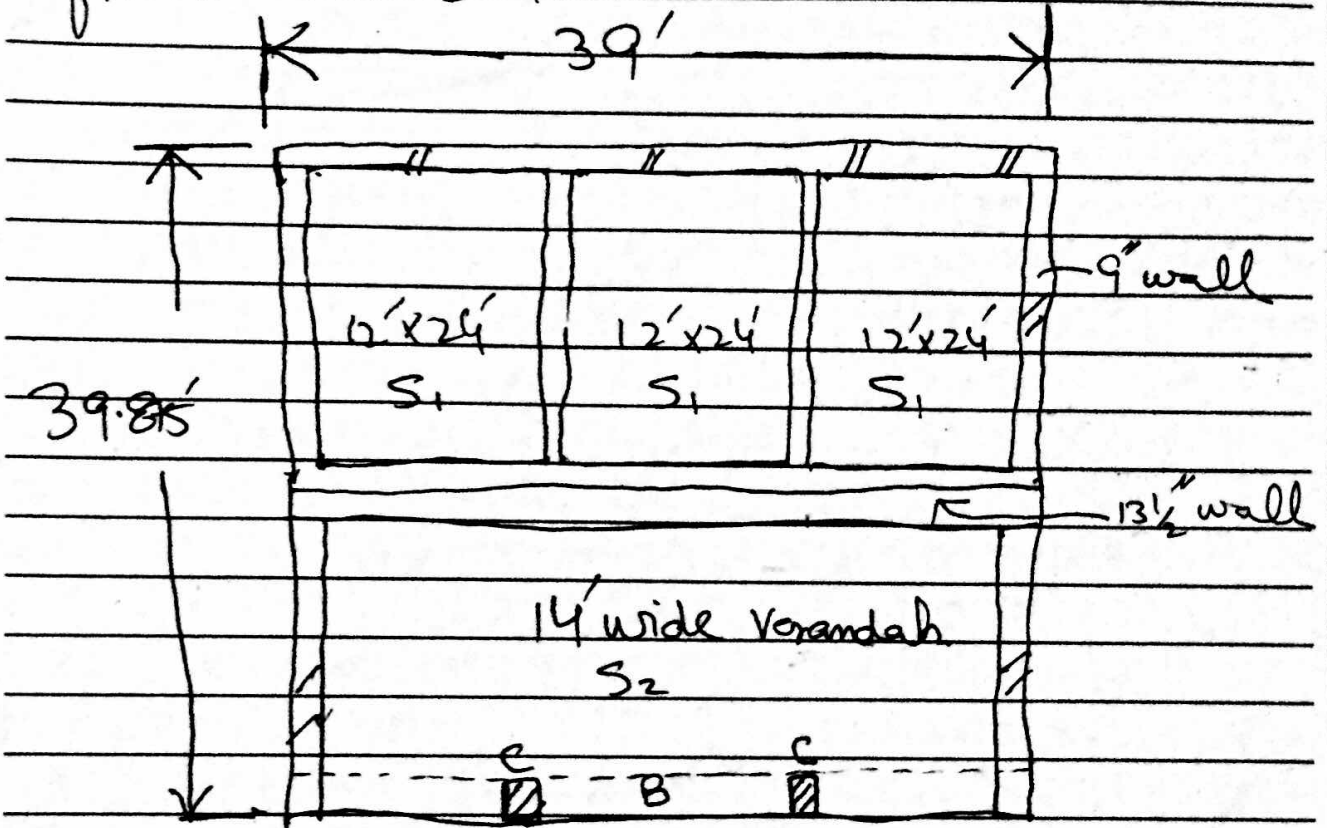 39'
9" wall
12'x24' 12'x24' 12'x24'
S1 S1 S1
13 1/2" wall
14' wide Verandah
S2
C C
B